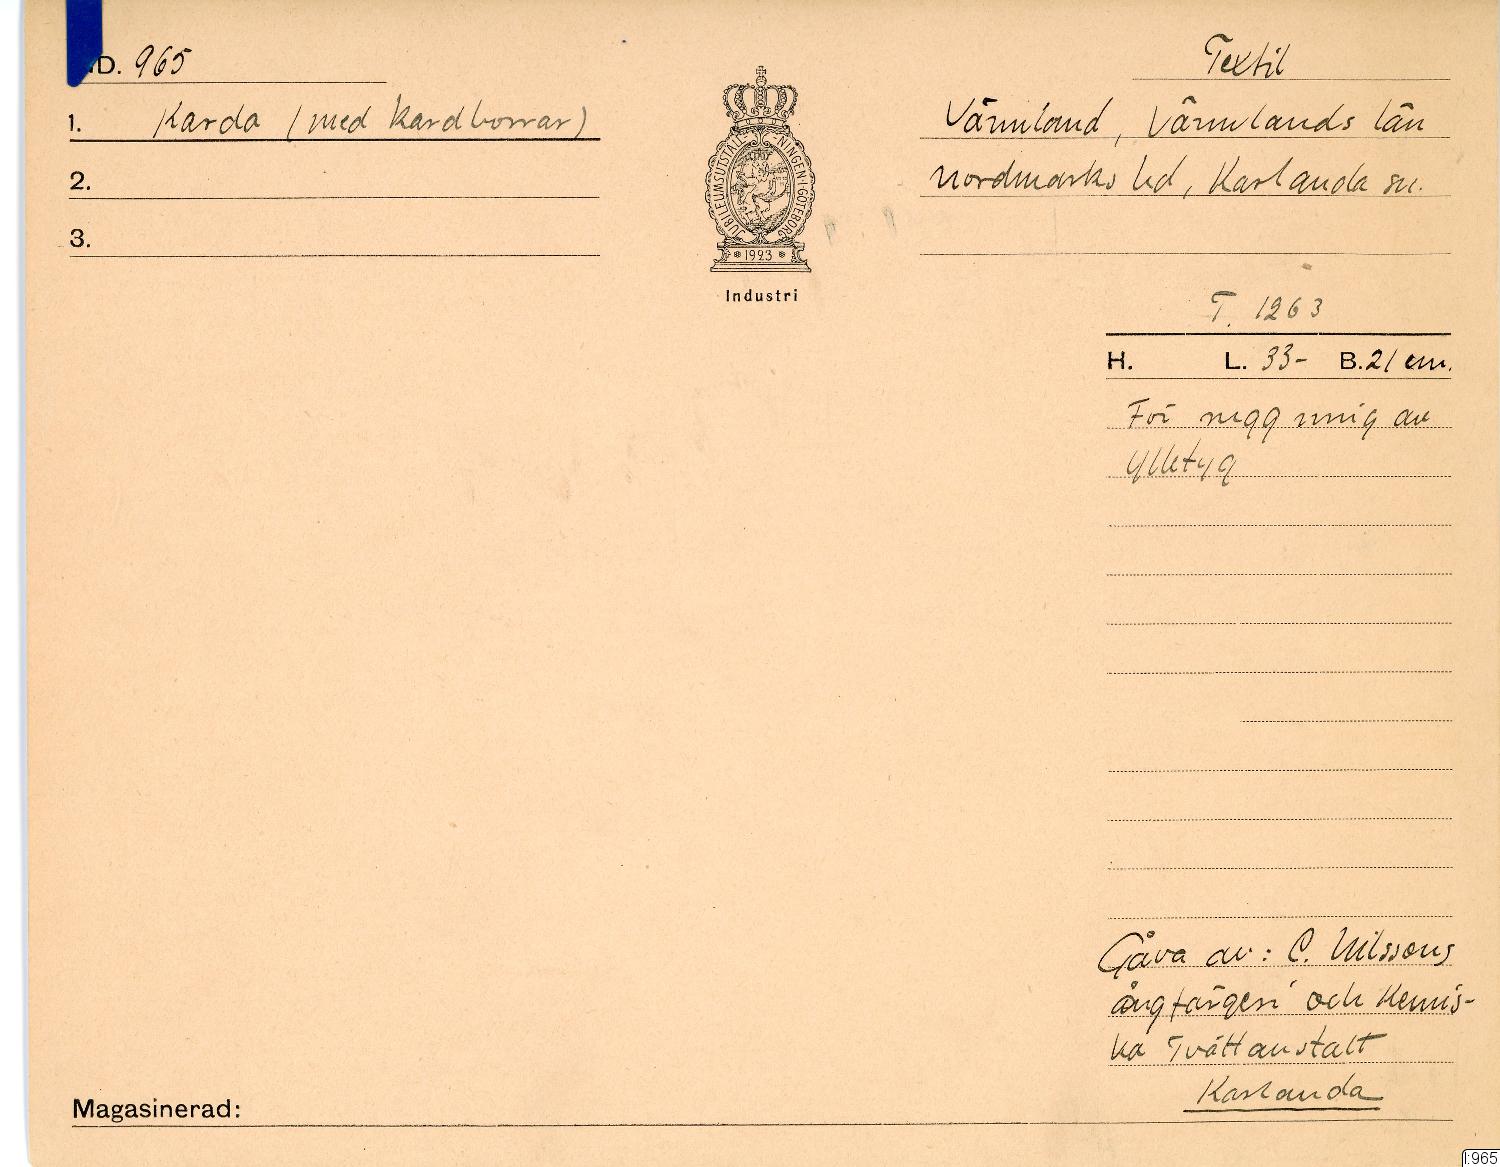 D. 965
Textil
1. Karda (med kardborrar)
Värmland, Värmlands län
2.
Nordmarks hd, Karlanda sn.
3.
JUBILEUMSUTSTÄLLNINGEN·I·GÖTEBORG
* 1923 *
Industri
T. 1263
H. L. 33- B. 21 cm.
För ruggning av
ylletyg
Gåva av: C. Nilssons
ångfärgeri och Kemis-
ka Tvättanstalt
Karlanda
Magasinerad:
I:965